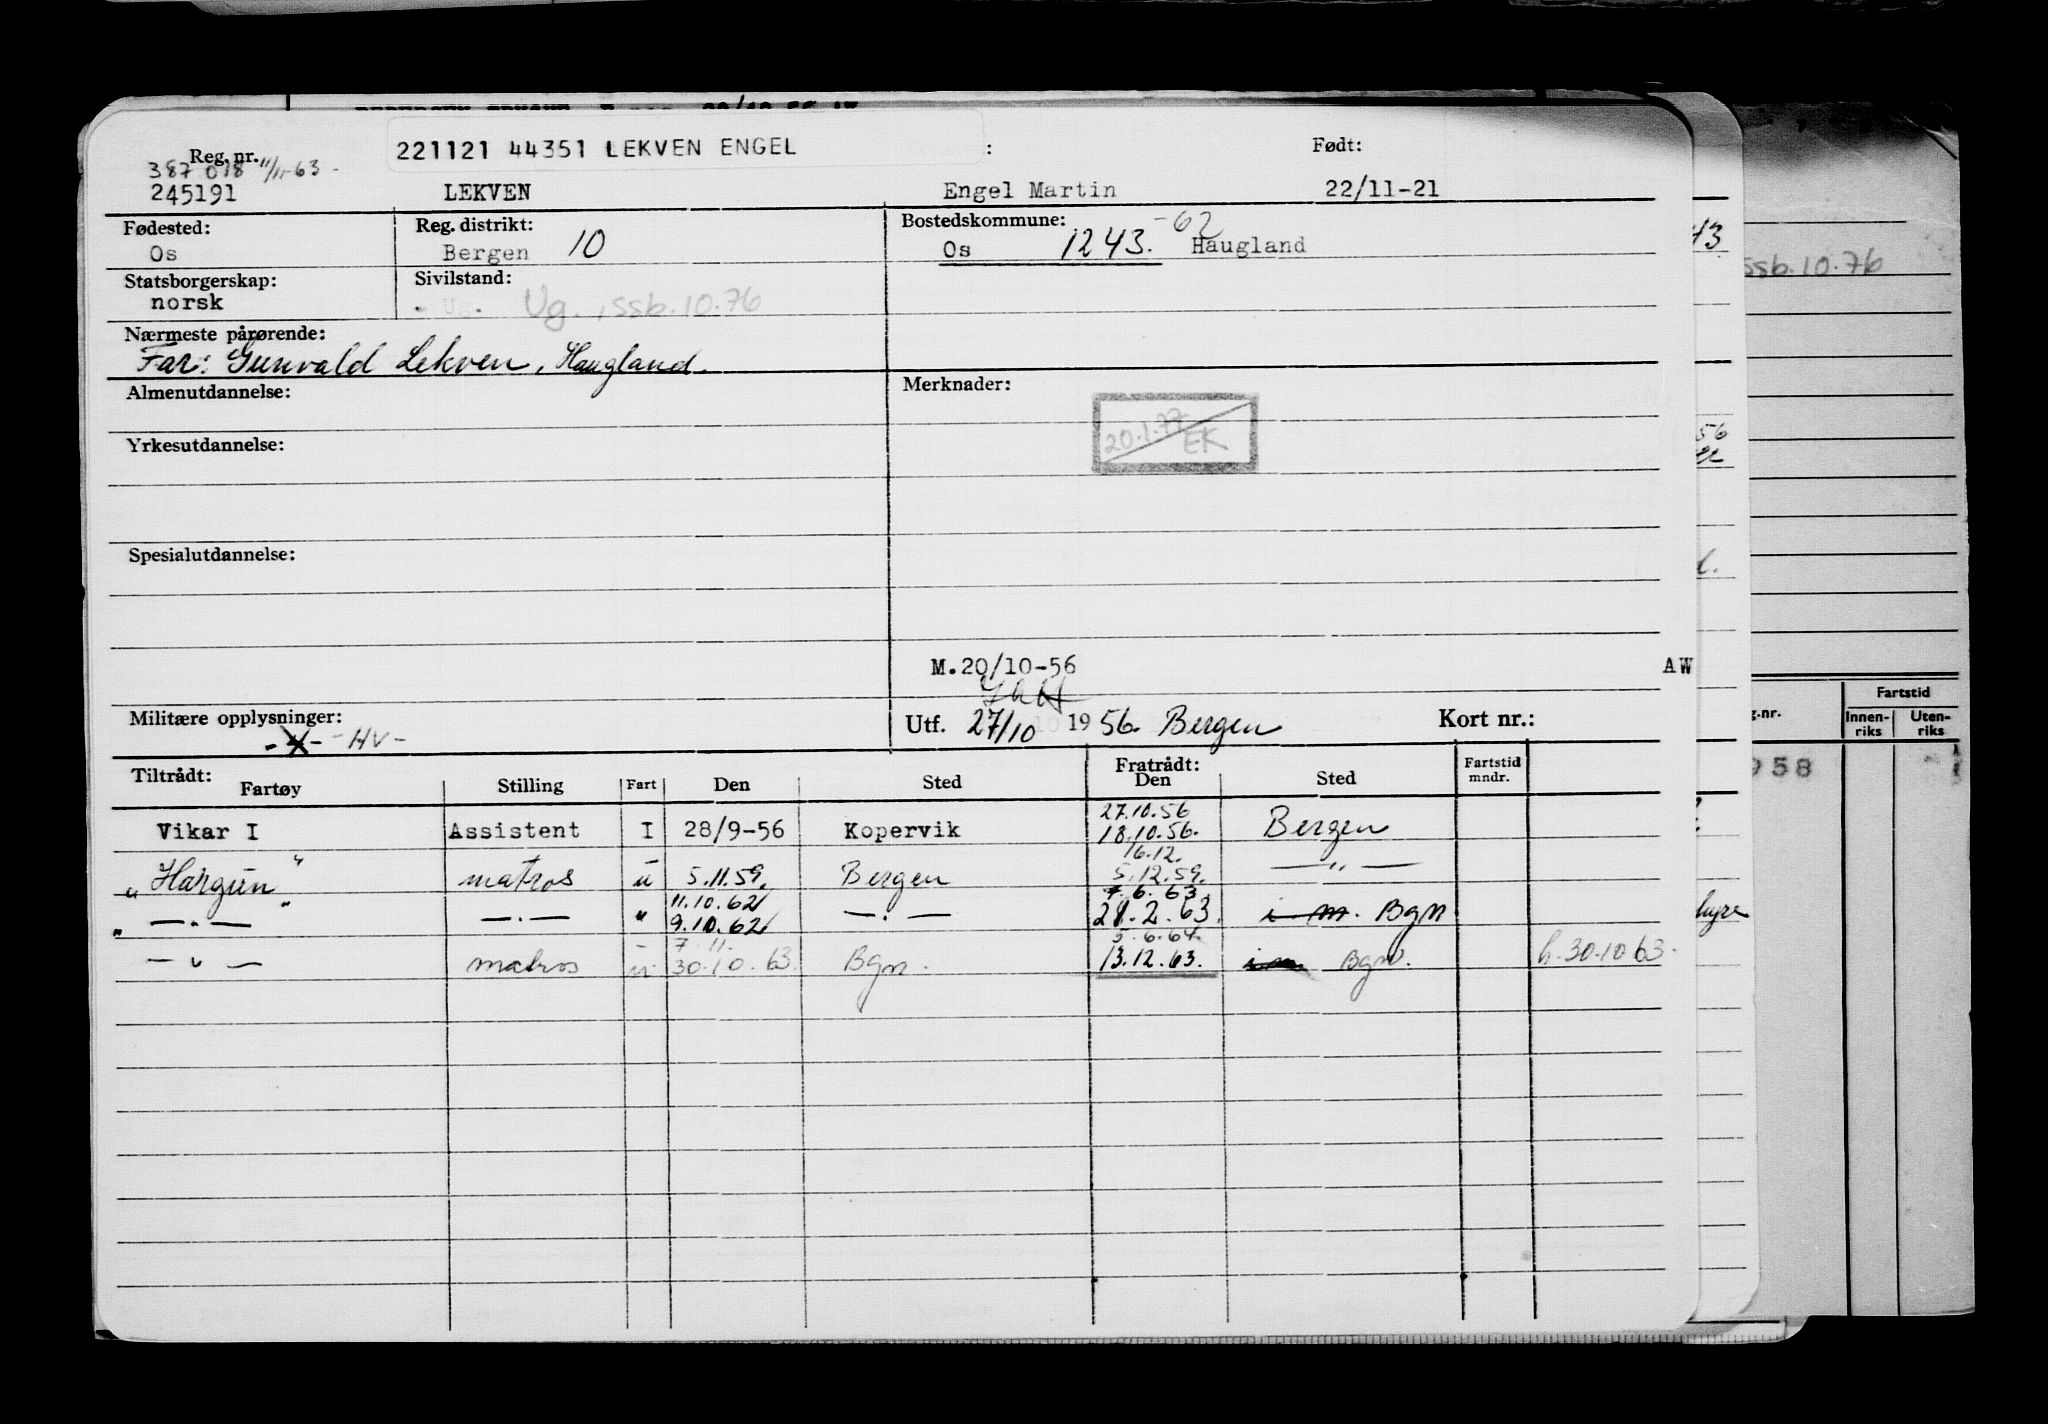 221121 44351 LEKVEN ENGEL : Født:
Reg. nr. 387 018 11/11-63-
245191 LEKVEN Engel Martin 22/11-21
Fødested: Reg. distrikt: Bostedskommune: -62
Os Bergen 10 Os 1243. Haugland
Statsborgerskap: Sivilstand:
norsk Ug. Ug. ,ssb.10.76
Nærmeste pårørende:
Far: Gunvald Lekven, Haugland.
Almenutdannelse: Merknader:
20.1.77 EK
Yrkesutdannelse:
Spesialutdannelse:
M.20/10-56 AW
Militære opplysninger: Utf. 27/10 1956. Bergen Kort nr.:
-HV-
Tiltrådt: Fratrådt: Fartstid
Fartøy Stilling Fart Den Sted Den Sted mndr.
27.10.56
Vikar I Assistent I 28/9-56 Kopervik 18.10.56. Bergen
16.12.
"Hargun" matros u 5.11.59. Bergen 5.12.59. — " —
11.10.62 7.6.63
" — . — " — . — " 9.10.62 — . — 28.2.63. i m. Bgn
7 11. 5.6.64.
— " — matros u. 30.10.63. Bgn. 13.12.63. i m Bgn. h.30.10 63.
43
ssb.10.76
56
Fartstid
g.nr. Innen- Uten-
riks riks
958
hyre